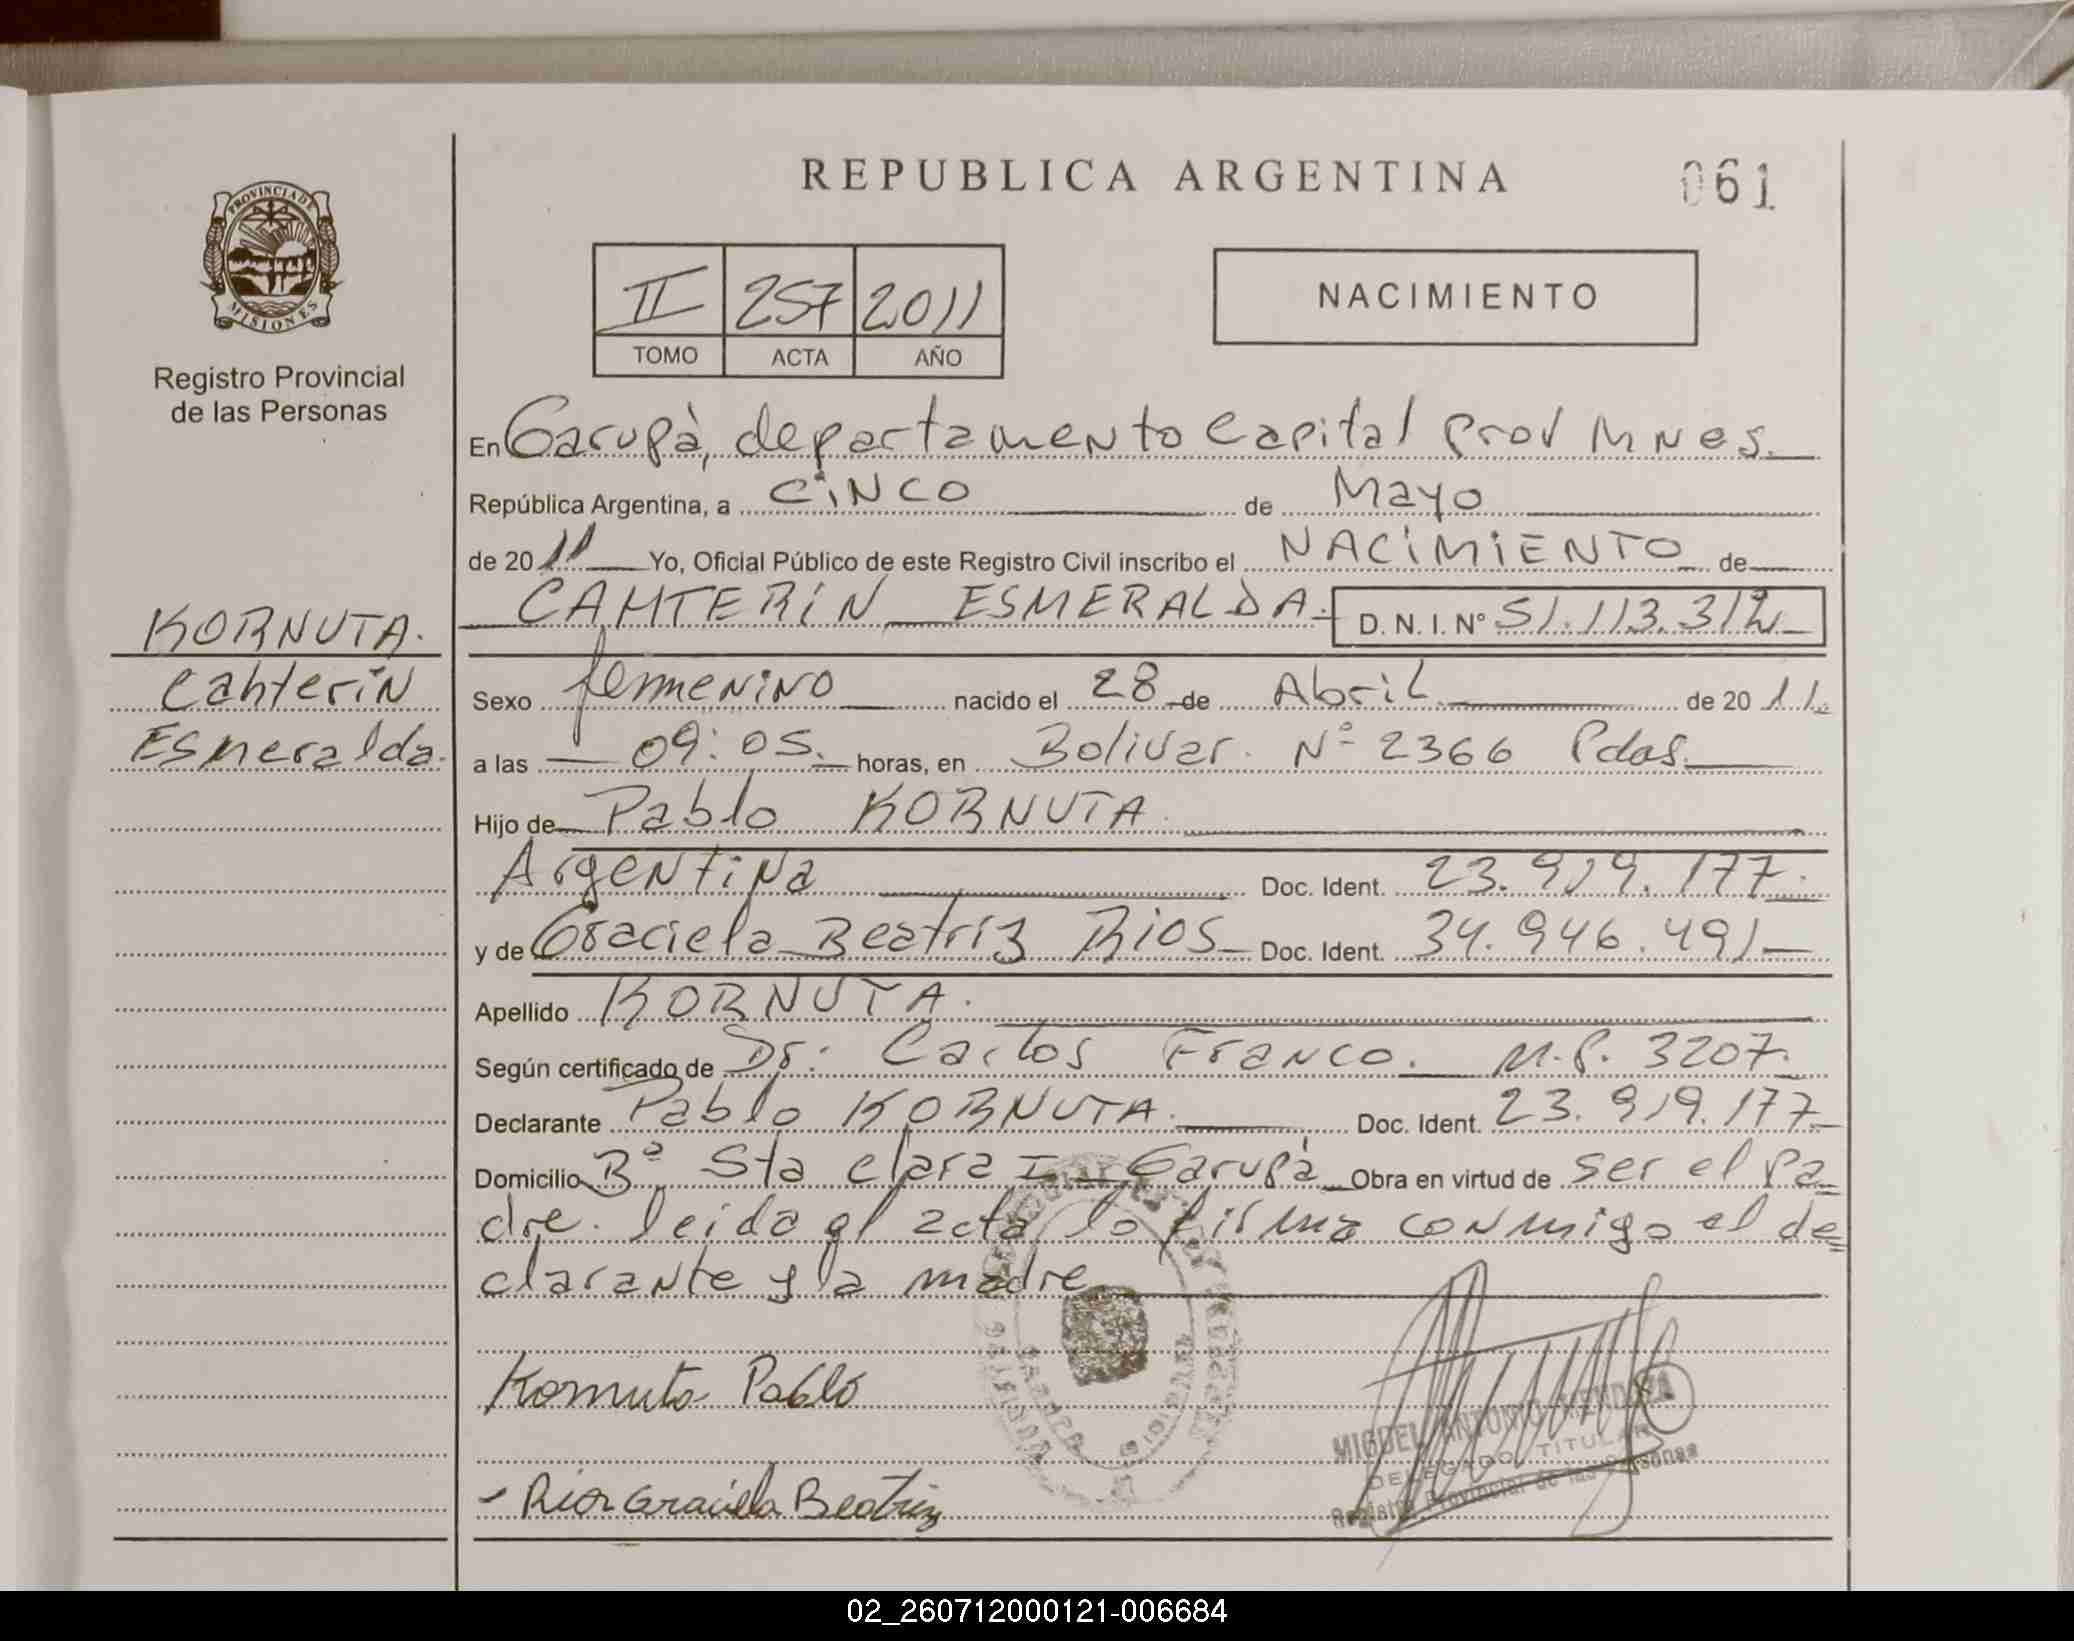 REPUBLICA ARGENTINA
061
PROVINCIA DE
MISIONES
Registro Provincial
de las Personas
II 257 2011
TOMO ACTA AÑO
NACIMIENTO
En Garupà, departamento Capital Prov Mnes.
República Argentina, a CINCO de Mayo
de 20 11 Yo, Oficial Público de este Registro Civil inscribo el NACIMIENTO de
CAHTERIN ESMERALDA. D. N. I. N° 51.113.312
KORNUTA.
Cahterin
Esmeralda.
Sexo femenino nacido el 28 de Abril de 20 11
a las 09:05. horas, en Bolivar. Nº 2366 Pdas.
Hijo de Pablo KORNUTA
Argentina Doc. Ident. 23.919.177.
y de Graciela Beatriz Rios Doc. Ident. 34.946.491
Apellido KORNUTA.
Según certificado de Dr: Carlos Franco. M.P. 3207.
Declarante Pablo KORNUTA. Doc. Ident. 23.919.177
Domicilio Bº Sta clara I Garupà Obra en virtud de ser el Pa
dre. leida el acta lo firma conmigo el de
clarante y la madre
Kornuta Pablo
Rios Graciela Beatriz
MIGUEL ANTONIO MENDOZA
DELEGADO TITULAR
Registro Provincial de las Personas
02_260712000121-006684